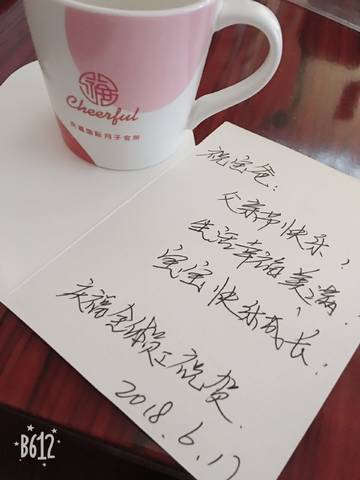 福
Cheerful
庆福国际月子会所
祝宝爸：
父亲节快乐！
生活幸福美满！
宝宝快乐成长。
庆福全体员工祝贺
2018.6.17
B612